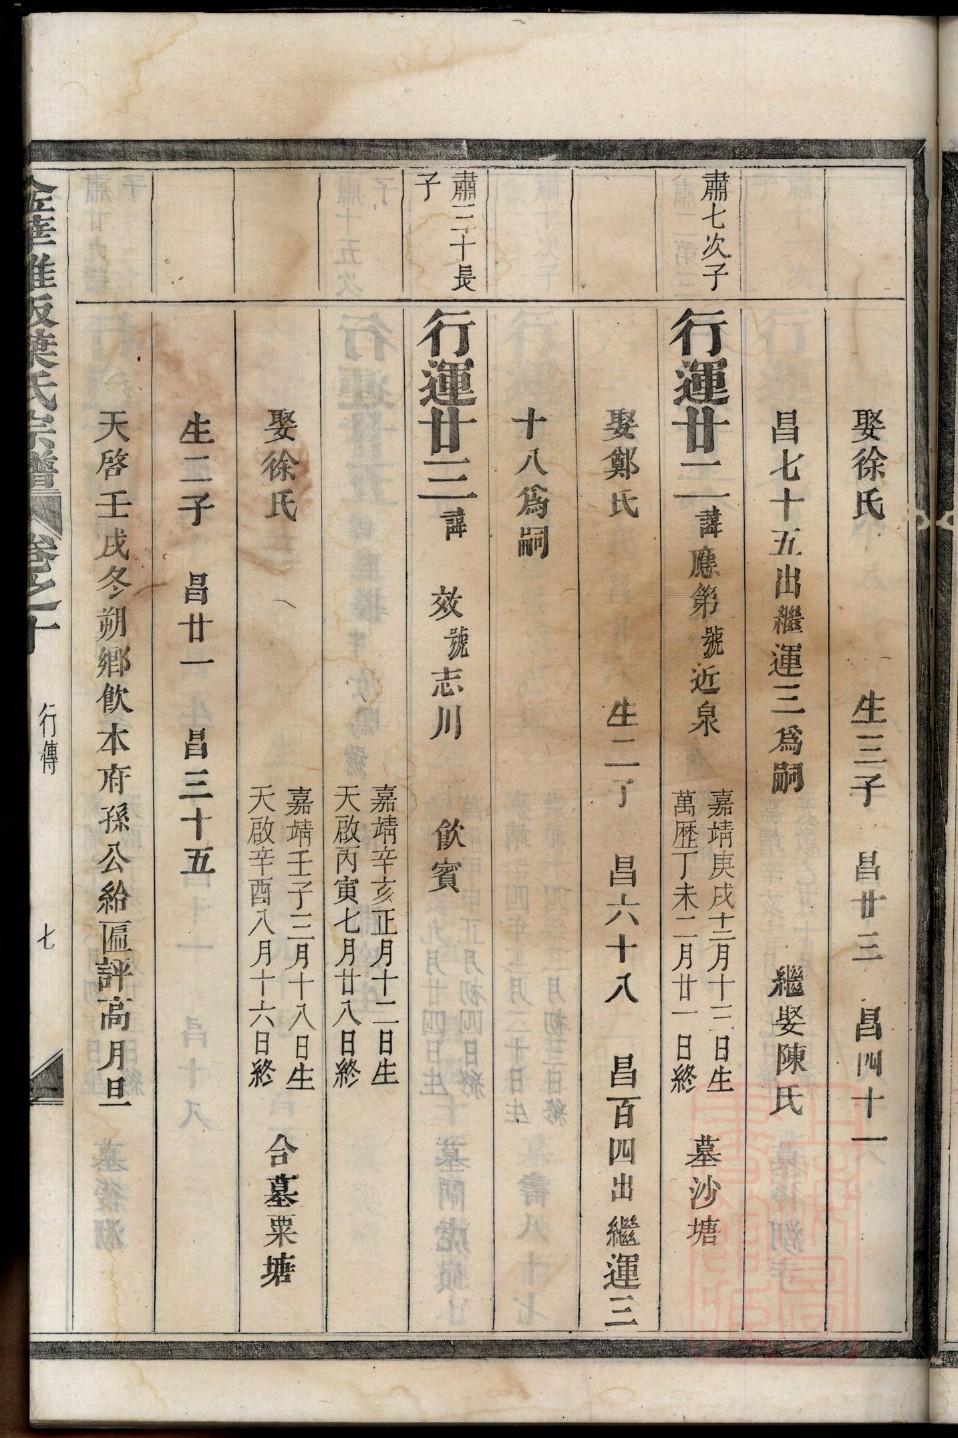 娶徐氏 生三子 昌廿三 昌四十一
昌七十五出繼運三爲嗣 繼娶陳氏
肅七次子
行運廿二諱應第號近泉 嘉靖庚戌十二月十二日生 墓沙塘
萬歷丁未二月廿一日終
娶鄭氏 生二子 昌六十八 昌百四出繼運三
十八爲嗣
肅三十長
子
行運廿三諱 效號志川 飲賓
嘉靖辛亥正月十二日生
天啟丙寅七月廿八日終
娶徐氏 嘉靖壬子三月十八日生 合墓粟塘
天啟辛酉八月十六日終
生二子 昌廿一 昌三十五
天啓壬戌冬朔鄉飲本府孫公給匾評高月旦
葉氏宗譜 卷之十 行傳 七